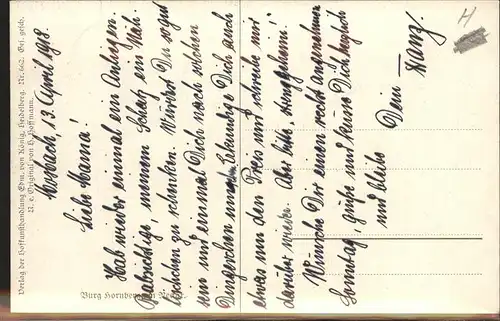 Mosbach, 13. April 1918.
Liebe Mama!
Hab wieder einmal ein Anliegen.
Beabsichtige, meinem Schatz ein Näh-
tischchen zu schenken. Würdest Du so gut
sein und einmal Dich nach solchen
Dingerchen umsehen. Erkundige Dich auch
etwas um den Preis und schreibe mir
darüber wieder. Aber bitte, streng geheim!
Wünsche Dir einen recht angenehmen
Sonntag, grüße und küsse Dich herzlich
und bleibe
Dein
Franz.
Verlag der Hofkunsthandlung Edm. von König, Heidelberg. Nr. 662. Ges. gesch.
N. e. Original von H. Hoffmann.
Burg Hornberg am Neckar.